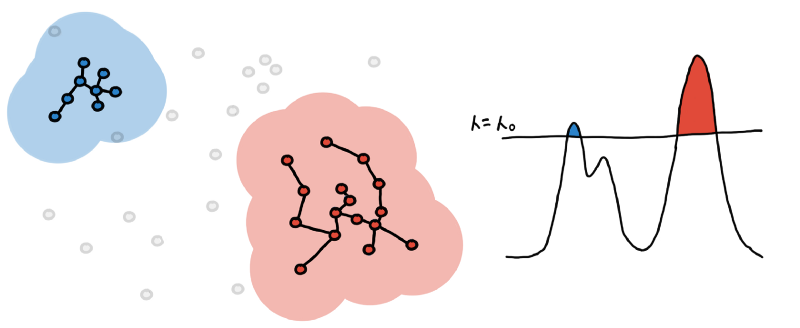 λ = λ₀